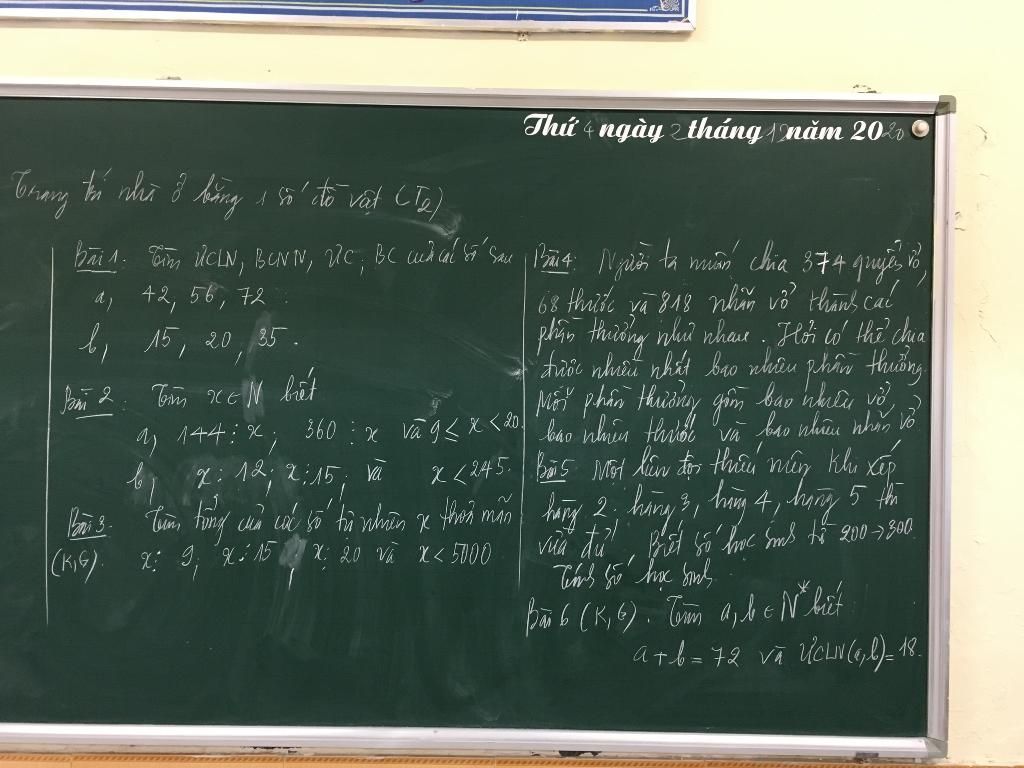 Thứ 4 ngày 2 tháng 12 năm 2020
Trang trí nhà ở bằng 1 số đồ vật (T2)
Bài 1. Tìm ƯCLN, BCNN, ƯC, BC của các số sau
a, 42, 56, 72
b, 15, 20, 35.
Bài 2 Tìm x ∈ N biết
a, 144 ⋮ x; 360 ⋮ x và 9 ≤ x < 20.
b, x ⋮ 12; x ⋮ 15; và x < 245.
Bài 3. Tìm tổng của các số tự nhiên x thỏa mãn
(K,G) x ⋮ 9; x ⋮ 15, x ⋮ 20 và x < 5000
Bài 4: Người ta muốn chia 374 quyển vở,
68 thước và 818 nhãn vở thành các
phần thưởng như nhau. Hỏi có thể chia
được nhiều nhất bao nhiêu phần thưởng.
Mỗi phần thưởng gồm bao nhiêu vở,
bao nhiêu thước và bao nhiêu nhãn vở
Bài 5 Một liên đội thiếu niên khi xếp
hàng 2, hàng 3, hàng 4, hàng 5 thì
vừa đủ, Biết số học sinh từ 200 → 300.
Tính số học sinh.
Bài 6 (K,G). Tìm a, b ∈ N* biết
a + b = 72 và ƯCLN(a,b) = 18.